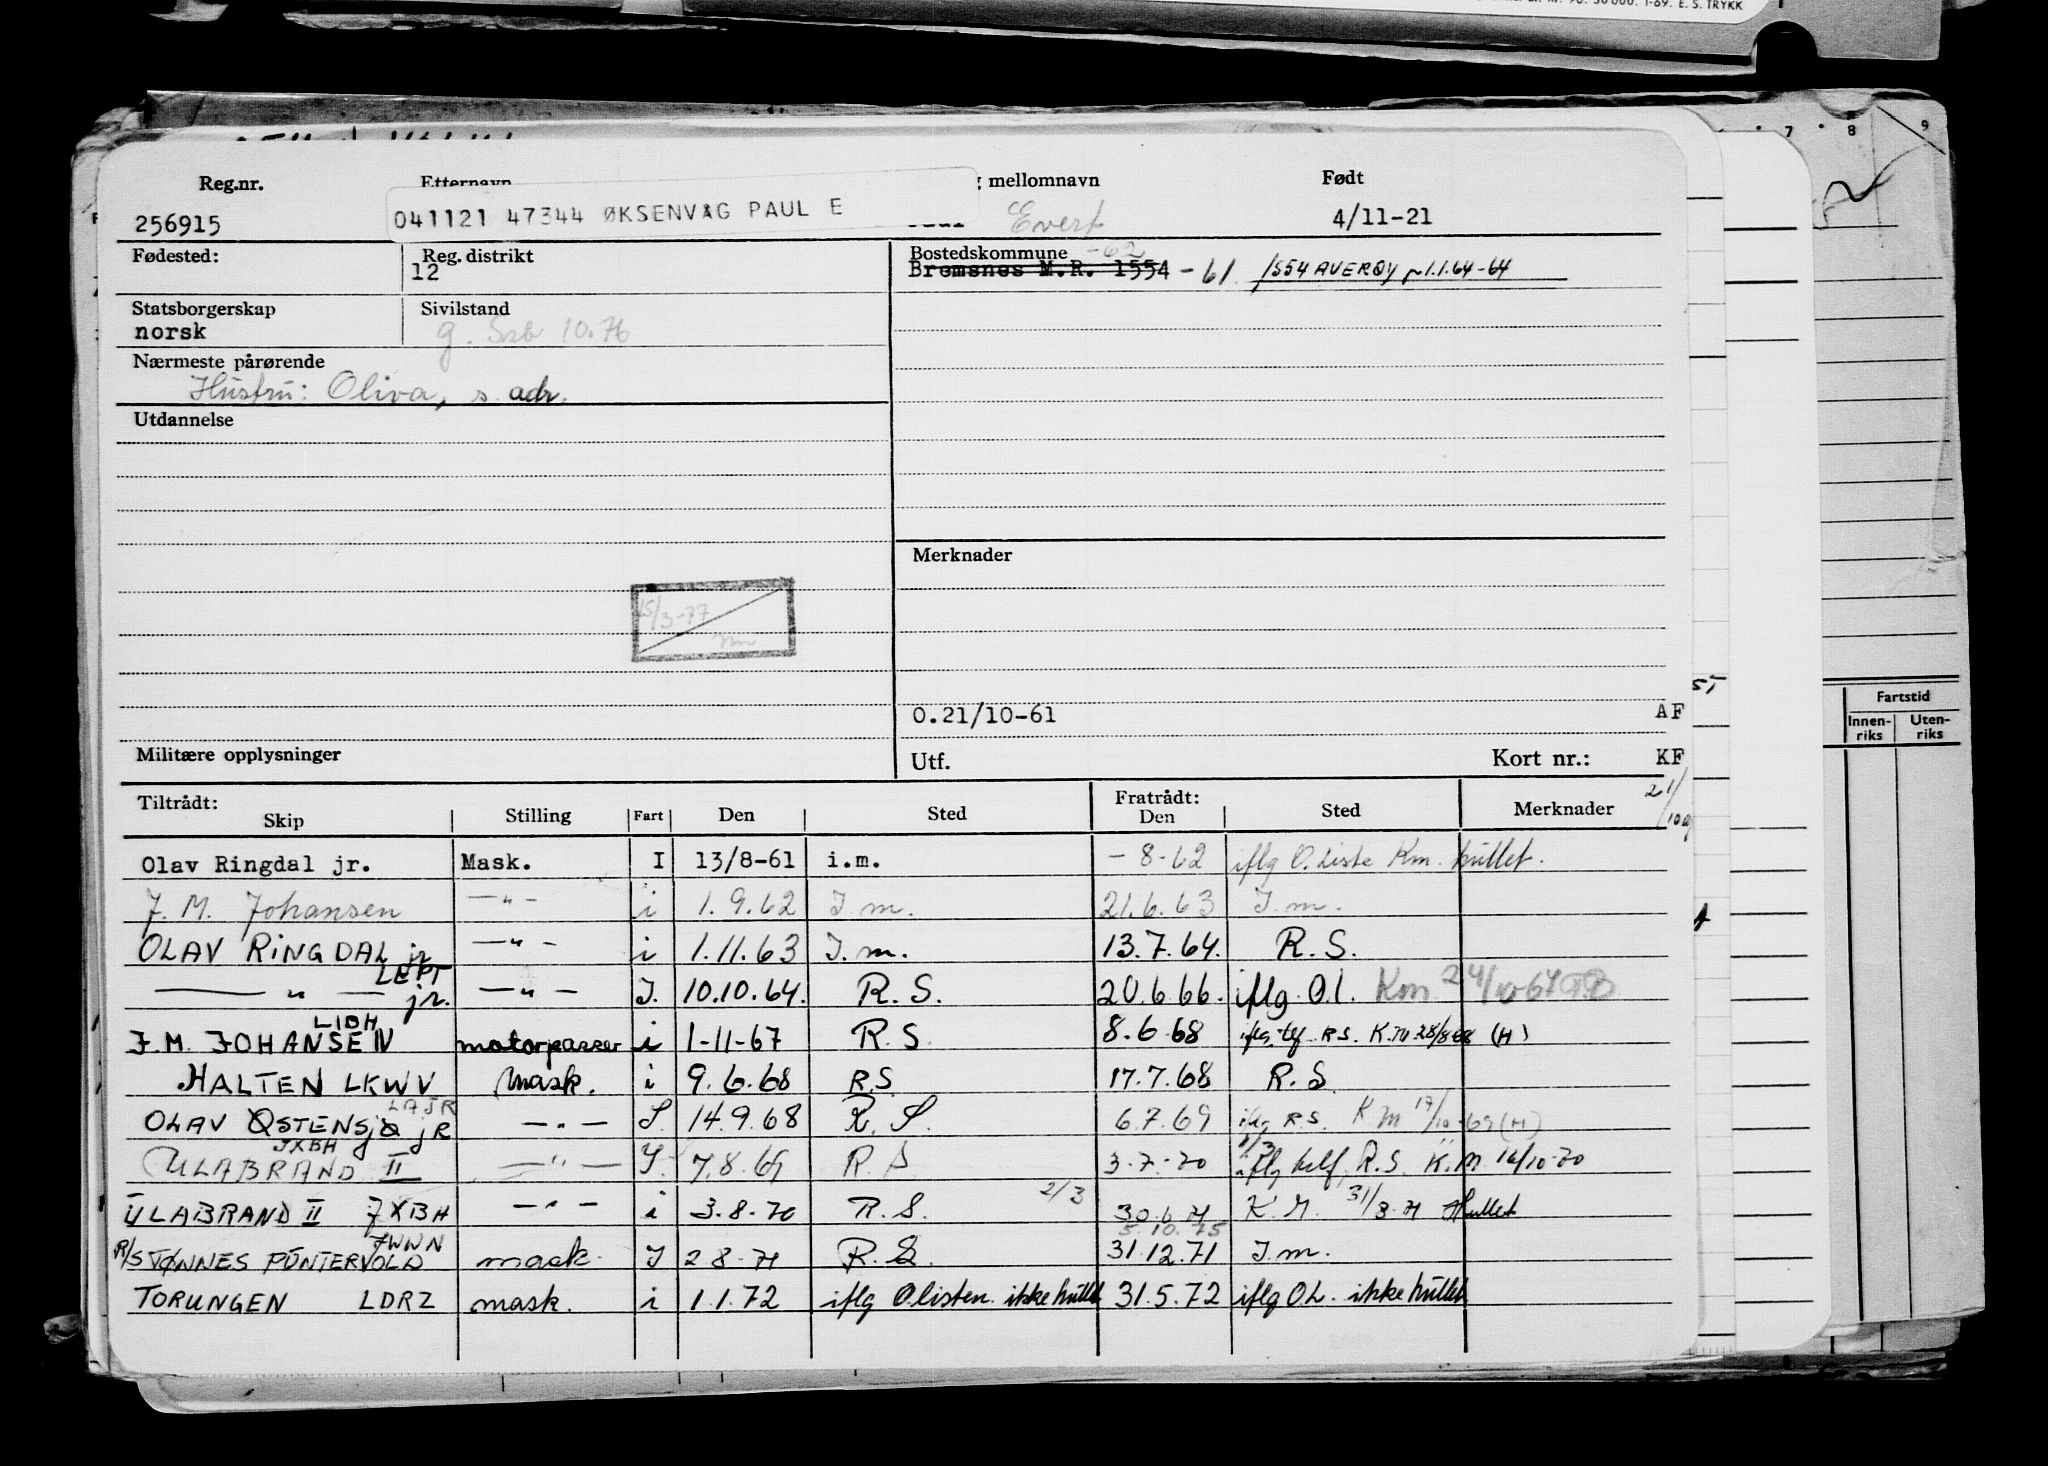 E. S. TRYKK
7 8 9
Reg.nr. Etternavn mellomnavn Født
256915 041121 47344 ØKSENVAG PAUL E Evert 4/11-21
Fødested: Reg. distrikt Bostedskommune -62
12 Bremsnes M.R. 1554 -61 1554 AVERØY 1.1.64-64
Statsborgerskap Sivilstand
norsk g. 10.76
Nærmeste pårørende
Hustru: Oliva, s. adr.
Utdannelse
Merknader
15/3-77
O.21/10-61 AF
Militære opplysninger Utf. Kort nr.: KF
Fartstid
Innen-riks Uten-riks
Tiltrådt: Fratrådt: 21/10
Skip Stilling Fart Den Sted Den Sted Merknader
Olav Ringdal jr. Mask. I 13/8-61 i.m. - 8-62 iflg O. liste Km. hullet.
J. M. Johansen —"— i 1.9.62 I.m. 21.6.63 I.m.
OLAV RINGDAL jr —"— i 1.11.63 I.m. 13.7.64. R.S.
—"— jr. LEPT —"— I. 10.10.64. R.S. 20.6.66. iflg O.l. Km 24/10-67
J.M. JOHANSEN LIDH motorpasser i 1-11-67 R.S. 8.6.68 iflg. tlf. R.S. K.M 28/8-68 (H)
HALTEN LKWV Mask. i 9.6.68 R.S 17.7.68 R.S
OLAV ØSTENSJØ JR LAJR —"— I. 14.9.68 R.S. 6.7.69 iflg R.S. K.M 17/10-69 (H)
ULABRAND II JXBH —"— I. 7.8.69 R.S 3-7-70 iflg telf. R.S. K.M. 16/10-70
ULABRAND II JXBH —"— i 3.8.70 R.S. 2/3 30.6.71 K.M. 31/8-71 Hullet
5.10.75
R/S TØNNES PUNTERVOLD JWWN mask. I 2 8-71 R.S. 31.12.71 I.m.
TORUNGEN LDRZ mask. i 1.1.72 iflg Olisten. ikke hullet 31.5.72 iflg OL. ikke hullet